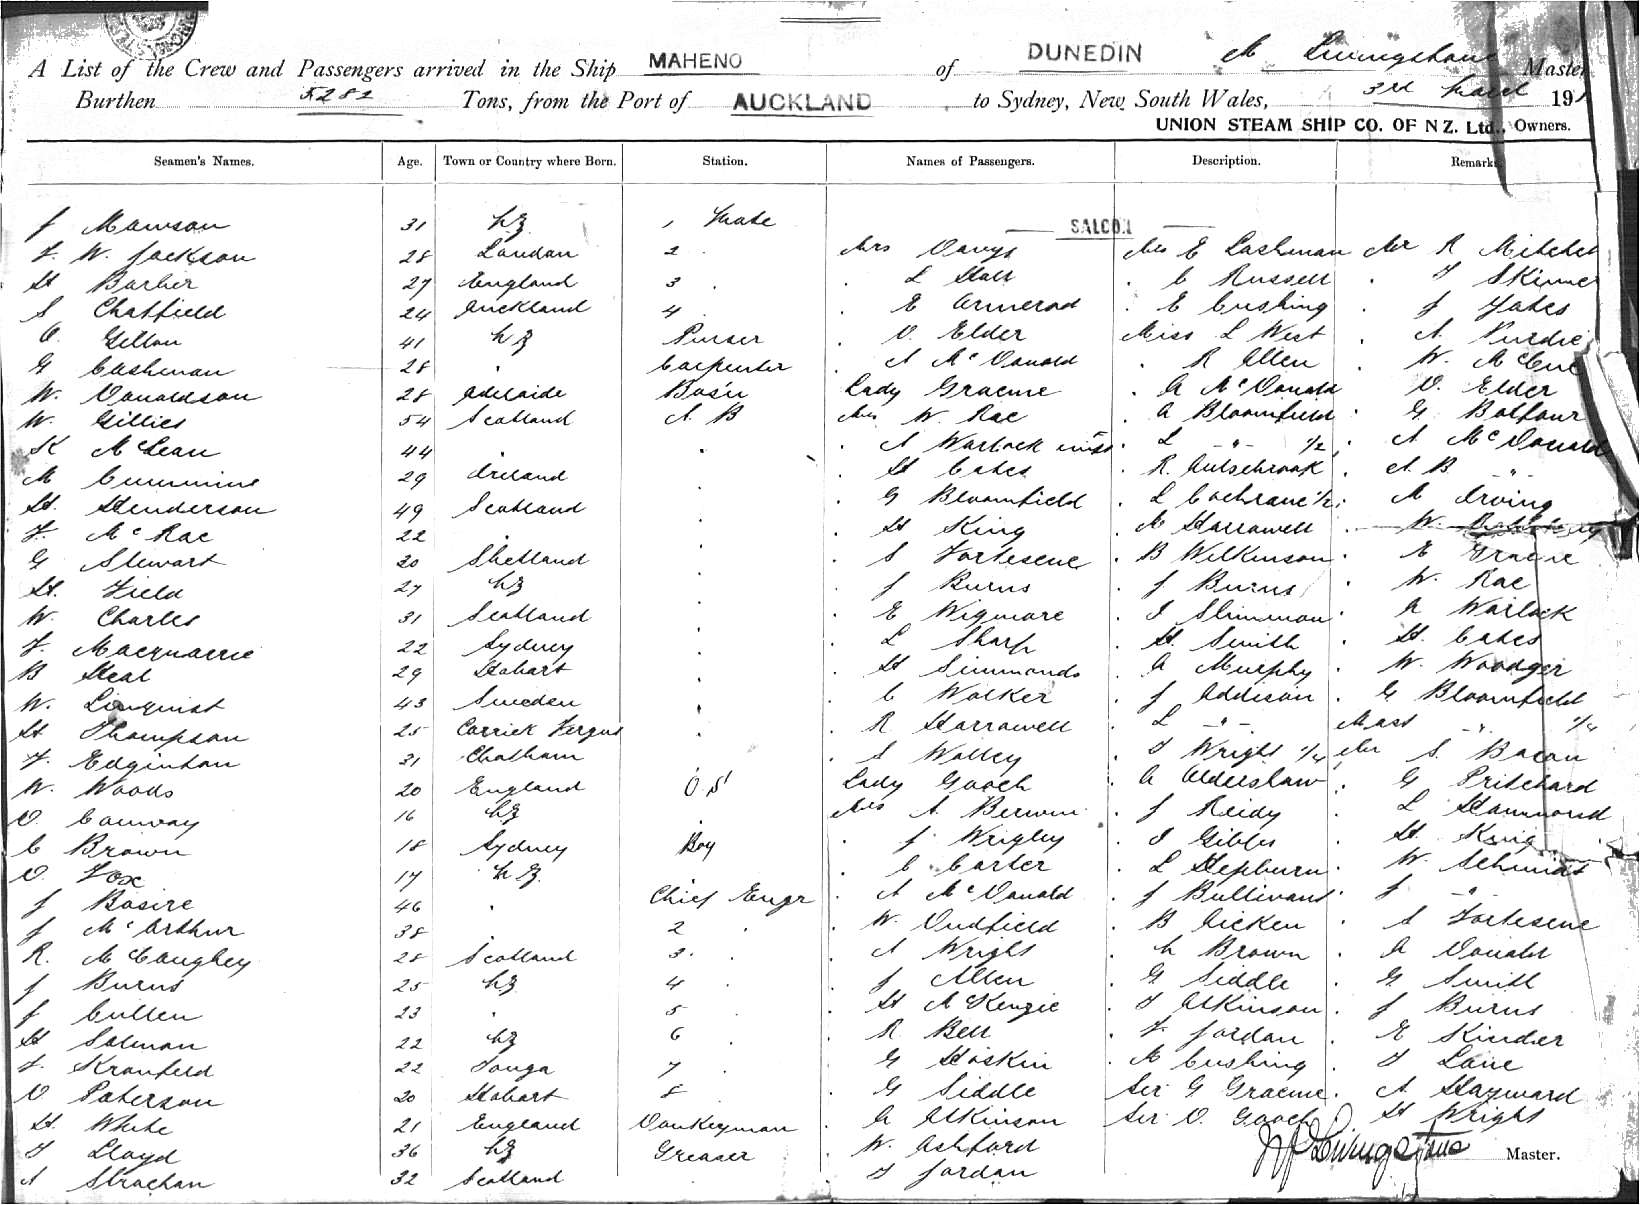 A List of the Crew and Passengers arrived in the Ship MAHENO of DUNEDIN M Livingstone Master
Burthen 5282 Tons, from the Port of AUCKLAND to Sydney, New South Wales, 3rd March 191
UNION STEAM SHIP CO. OF N Z. Ltd., Owners.
Seamen's Names. Age. Town or Country where Born. Station. Names of Passengers. Description. Remarks
SALOON
J Mawson 31 NZ 1 Mate
F. W. Jackson 28 London 2 . Mrs Davys Mrs E Lashman Mr R Mitchel
H Barber 27 England 3 . . L Hall . C Russell . T Skinner
S Chatfield 24 Auckland 4 . . E Ormerod . E Cushing . J Yates
C. Gillon 41 NZ Purser . D Elder Miss L West . A Purdie
G Cashman 28 . Carpenter . A McDonald . R Allen . W. McCue
W. Donaldson 28 Adelaide Bos'n Lady Graeme . A McDonald . D. Elder
W. Gillies 54 Scotland A B Mrs W. Rae . A Bloomfield . G Balfour
K McLean 44 . . . A Warlock . L -"- 1/2 . A McDonald
M Cummins 29 Ireland . . H Cates . R. . A B "
H. Henderson 49 Scotland . . G Bloomfield . L Cochrane 1/2 . M Irving
F. McRae 22 . . . H King . M Harrowell . W.
G Stewart 20 Shetland . . S Fortescue . B Wilkinson . E Gracie
H. Field 27 NZ . . J Burns . J Burns . W. Rae
W. Charles 31 Scotland . . E Wigmore . I Slimmon . A Warlock
F. Macquarrie 22 Sydney . . L Sharp . H. Smith . H. Cates
B Heal 29 Hobart . . H Simmonds . A Murphy . W. Woodger
W. Linquist 43 Sweden . . C Walker . J Addison . G Bloomfield
H Thompson 25 Carrick Fergus . . R Harrowell . L -"- Mast " 1/4
F. Edginton 31 Chatham . . S Walley . T Wright 1/4 Mr S. Bacon
W. Woods 20 England O.S Lady Gooch . A Aldershaw . G Pritchard
D. Conway 16 NZ . Mrs A Berwin . J Reidy . L Hammond
C Brown 18 Sydney Boy . J Wrigley . I Gibbs . H. King
D. Fox 17 NZ . . C Carter . L Hepburn . W. Schmidt
J Bosire 46 . Chief Engr . A McDonald . J Bullivant . J -"-
J McArthur 38 . 2 . . W. Dudfield . B Aicken . S Fortescue
R. McCaughey 28 Scotland 3. . . A Wright . N Brown . A Donald
J Burns 25 NZ 4 . . J Allen . G Siddle . G Smith
J Cullen 23 . 5 . . H McKenzie . T Atkinson . J Burns
H Salmon 22 NZ 6 . . R Bell . F. Jordan . E Kinder
F. Kronfeld 22 Tonga 7 . . G Hoskin . M Cushing . T Lane
D Paterson 20 Hobart 8 . . G Siddle Sir G Graeme . A. Hayward
H. White 21 England Donkeyman . A Atkinson Sir D. Gooch . H Wright
T Lloyd 36 NZ Greaser . W. Ashford
A Strachan 32 Scotland . . T Jordan
Livingstone Master.